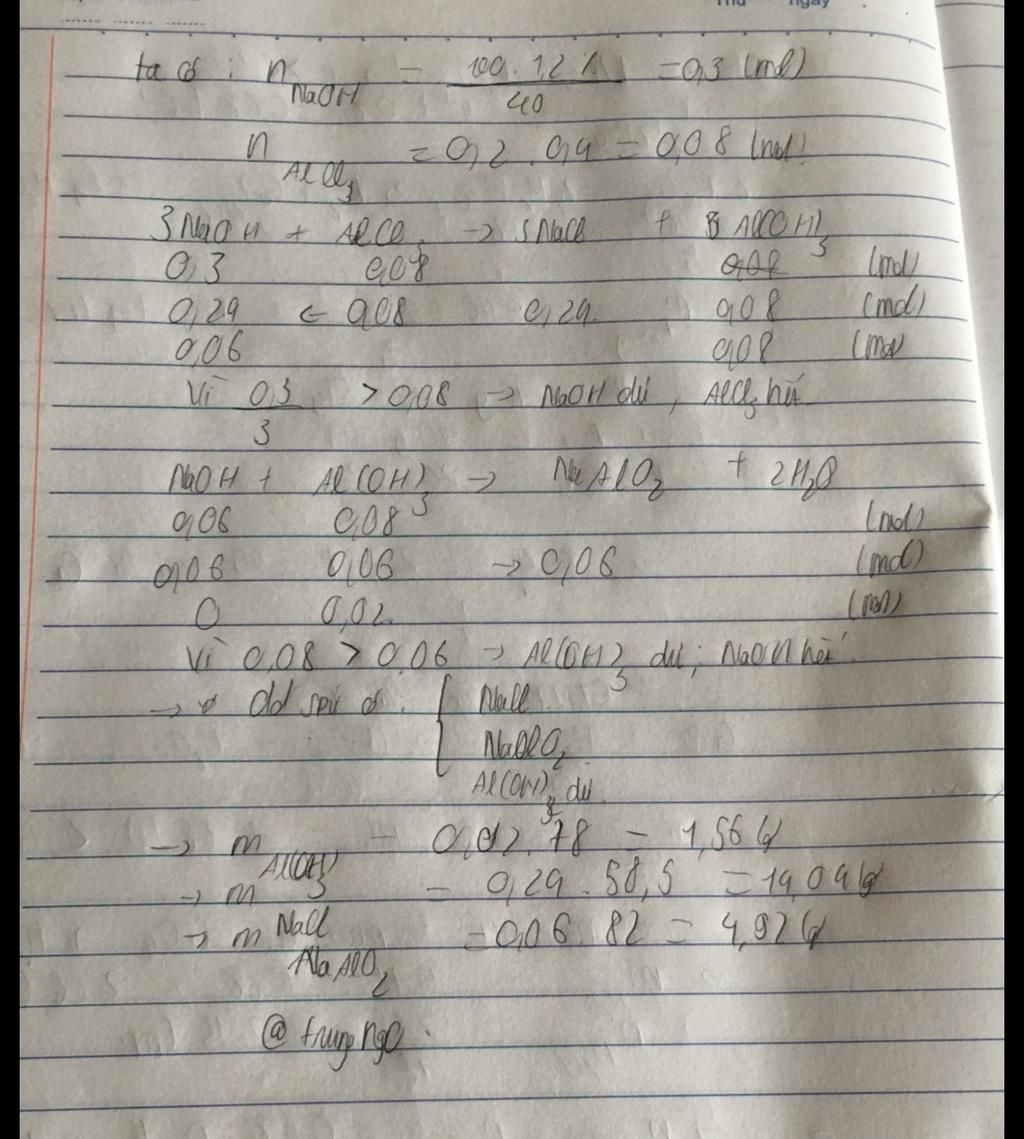 Thứ ngày
ta có : n NaOH = 100.12% / 40 = 0,3 (mol)
n AlCl3 = 0,2 . 0,4 = 0,08 (mol)
3NaOH + AlCl3 → 3NaCl + Al(OH)3
0,3 0,08 0,08 (mol)
0,24 ← 0,08 0,24 0,08 (mol)
0,06 0,08 (mol)
Vì 0,3 / 3 > 0,08 → NaOH dư, AlCl3 hết
NaOH + Al(OH)3 → NaAlO2 + 2H2O
0,06 0,08 (mol)
0,06 0,06 → 0,06 (mol)
0 0,02 (mol)
Vì 0,08 > 0,06 → Al(OH)3 dư; NaOH hết
→ dd spứ có : { NaCl
NaAlO2
Al(OH)3 dư
→ m Al(OH)3 = 0,02.78 = 1,56 g
→ m NaCl = 0,24.58,5 = 14,04 g
→ m NaAlO2 = 0,06.82 = 4,92 g
@ trung ngo